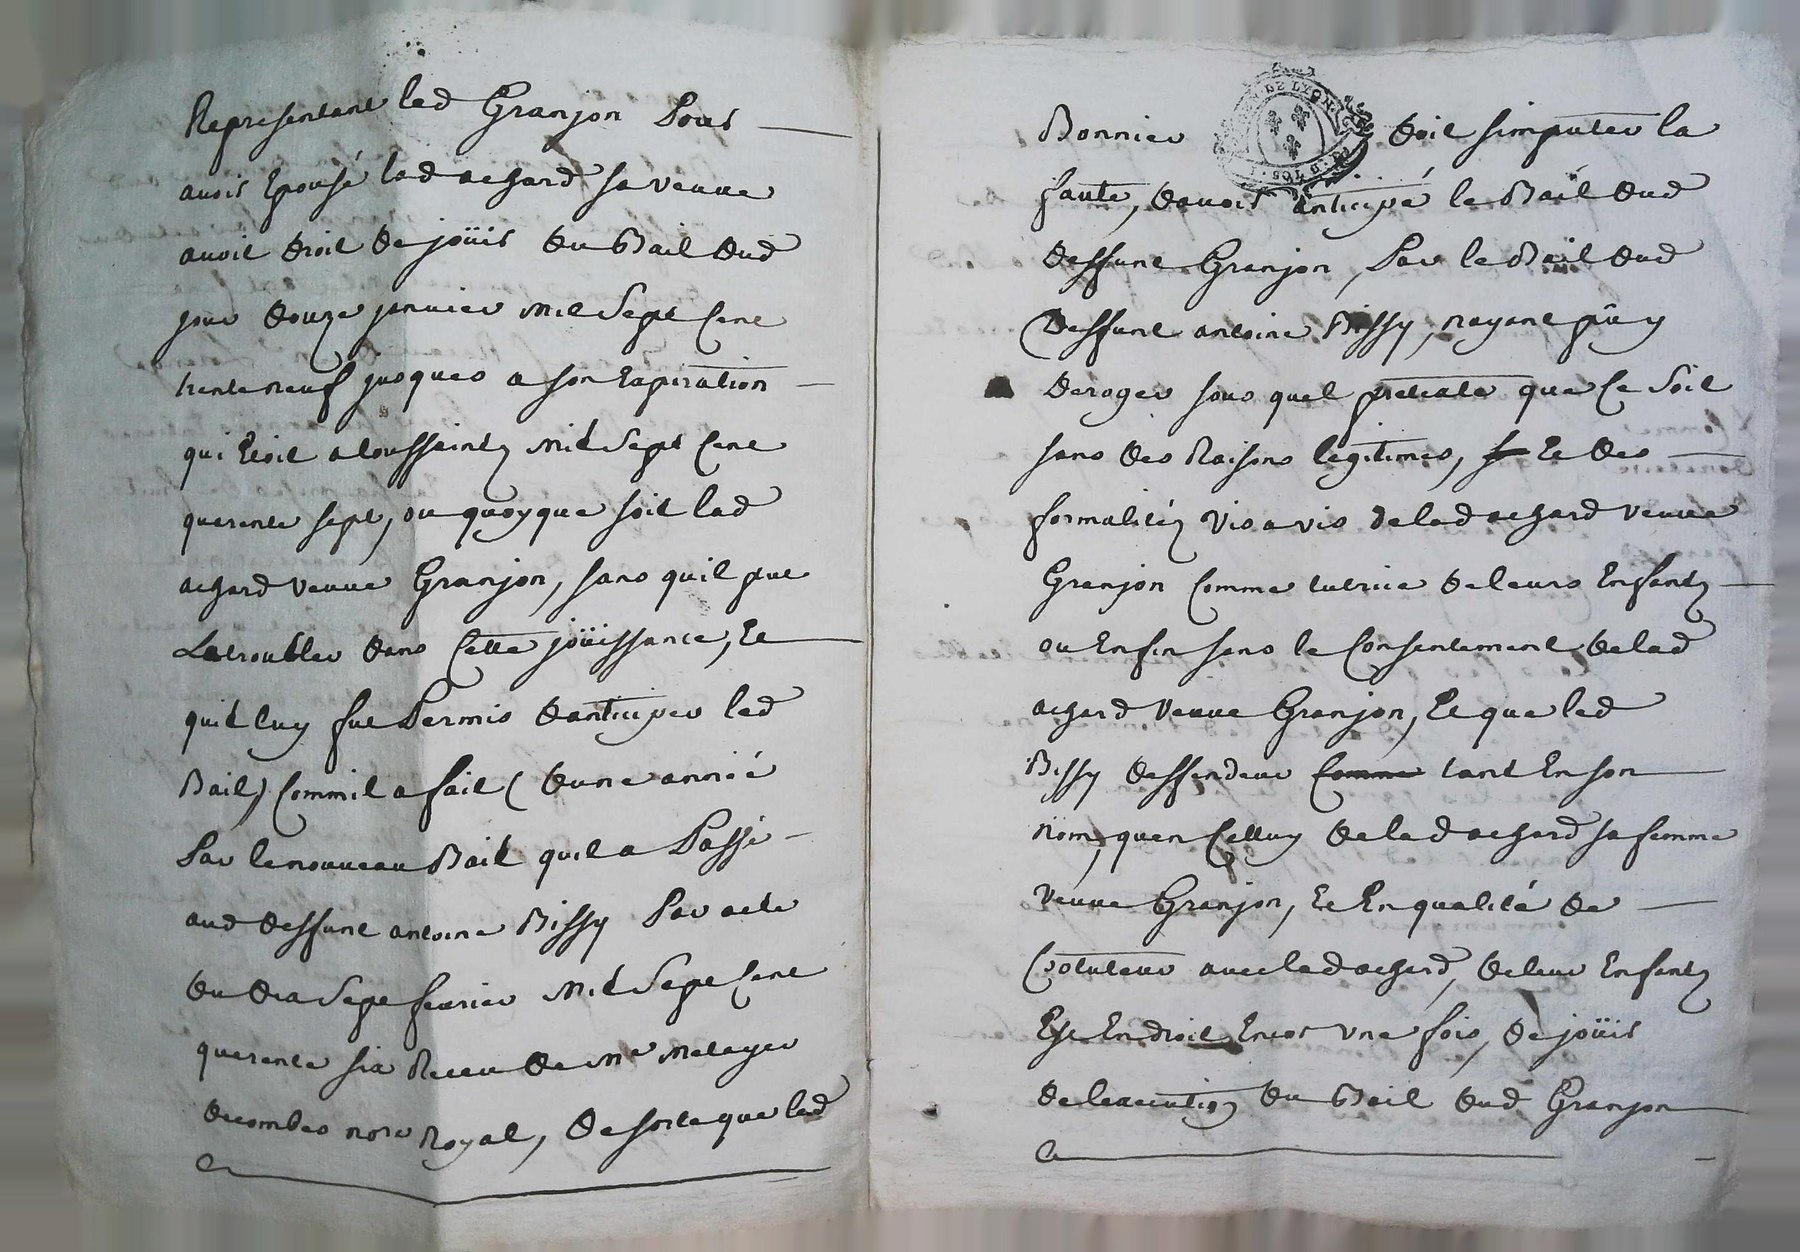 Representant led Granjon Pour
avoir Epousé lad achard sa veuve
avoit droit de joüir du Bail dud
jour douze janvier mil Sept Cent
trente neuf jusques a son Expiration
qui Etoit a toussaintz mil Sept Cent
querente sept, ou quoyque soit lad
achard veuve Granjon, sans quil put
Letroubler dans Cette joüissance, Et
quil luy fut Permis danticiper led
Bail) Commil a fait ( dune année
Par lenouveau Bail quil a Passé
aud deffunt antoine Bissy Par acte
du dix Sept fevrier Mil Sept Cent
querente six Receu de Me Metayer
decombes nore Royal, de sorte que led
Bonnier doit simputer la
faute, davoir anticipé le Bail dud
deffunt Granjon, Par le Bail dud
Deffunt antoine Bissy, nayant pû y
deroger sous quel pretexte que Ce Soit
sans des Raisons legitimes, Et des
formalitéz vis a vis delad achard veuve
Granjon Comme tutrice deleurs Enfantz
ou Enfin sans le Consentement delad
achard veuve Granjon, Et que led
Bissy deffendeur Comme tant En son
nom, quen Celluy delad achard sa femme
veuve Granjon, Et En qualité de
Cotuteur avec lad achard, deleur Enfantz
Est Endroit Encor une fois, de joüir
delexecution du Bail dud Granjon
DE LYON